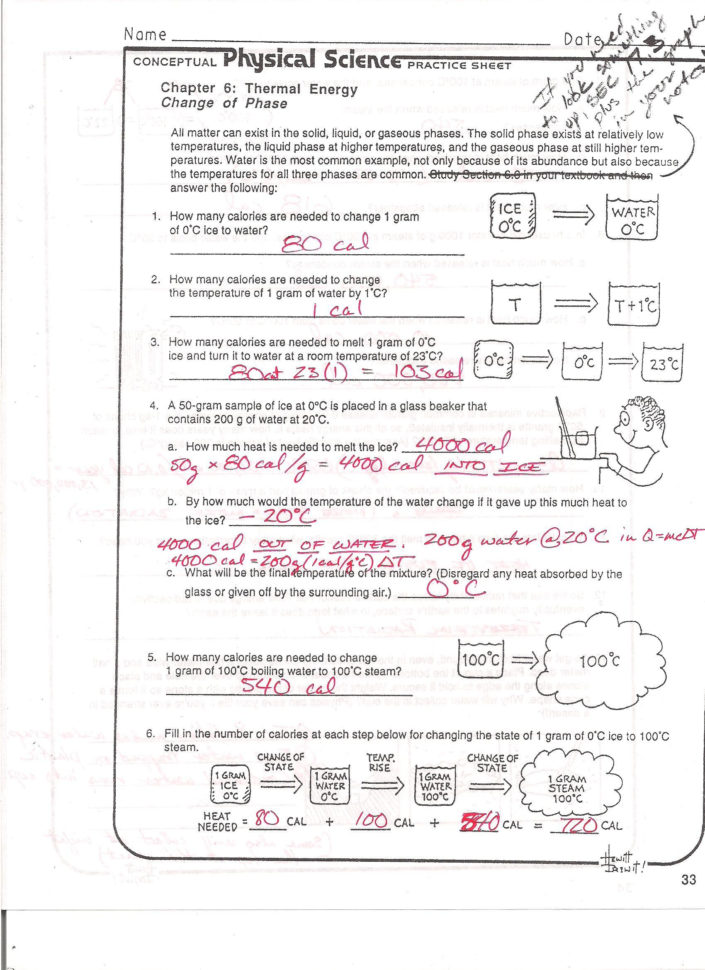 Name
Date
If you need
to look something
up, SEC 7.3
plus the graph
in your
notes!
CONCEPTUAL Physical Science PRACTICE SHEET
Chapter 6: Thermal Energy
Change of Phase
All matter can exist in the solid, liquid, or gaseous phases. The solid phase exists at relatively low
temperatures, the liquid phase at higher temperatures, and the gaseous phase at still higher tem-
peratures. Water is the most common example, not only because of its abundance but also because
the temperatures for all three phases are common. Study Section 6.6 in your textbook and then
answer the following:
1. How many calories are needed to change 1 gram
of 0°C ice to water?
80 cal
ICE
0°C
WATER
0°C
2. How many calories are needed to change
the temperature of 1 gram of water by 1°C?
1 cal
T
T+1°C
3. How many calories are needed to melt 1 gram of 0°C
ice and turn it to water at a room temperature of 23°C?
23(1) = 103 cal
0°C
0°C
23°C
4. A 50-gram sample of ice at 0°C is placed in a glass beaker that
contains 200 g of water at 20°C.
a. How much heat is needed to melt the ice? 4000 cal
50g × 80 cal/g = 4000 cal INTO ICE
b. By how much would the temperature of the water change if it gave up this much heat to
the ice? - 20°C
4000 cal OUT OF WATER. 200g water @ 20°C in Q=mcΔT
4000 cal = 200g (1cal/g°C) ΔT
c. What will be the final temperature of the mixture? (Disregard any heat absorbed by the
glass or given off by the surrounding air.) 0°C
5. How many calories are needed to change
1 gram of 100°C boiling water to 100°C steam?
540 cal
100°C
100°C
6. Fill in the number of calories at each step below for changing the state of 1 gram of 0°C ice to 100°C
steam.
CHANGE OF
STATE
TEMP.
RISE
CHANGE OF
STATE
1 GRAM
ICE
0°C
1 GRAM
WATER
0°C
1 GRAM
WATER
100°C
1 GRAM
STEAM
100°C
HEAT
NEEDED = 80 CAL + 100 CAL + 540 CAL = 720 CAL
Hewitt
Drewit!
33